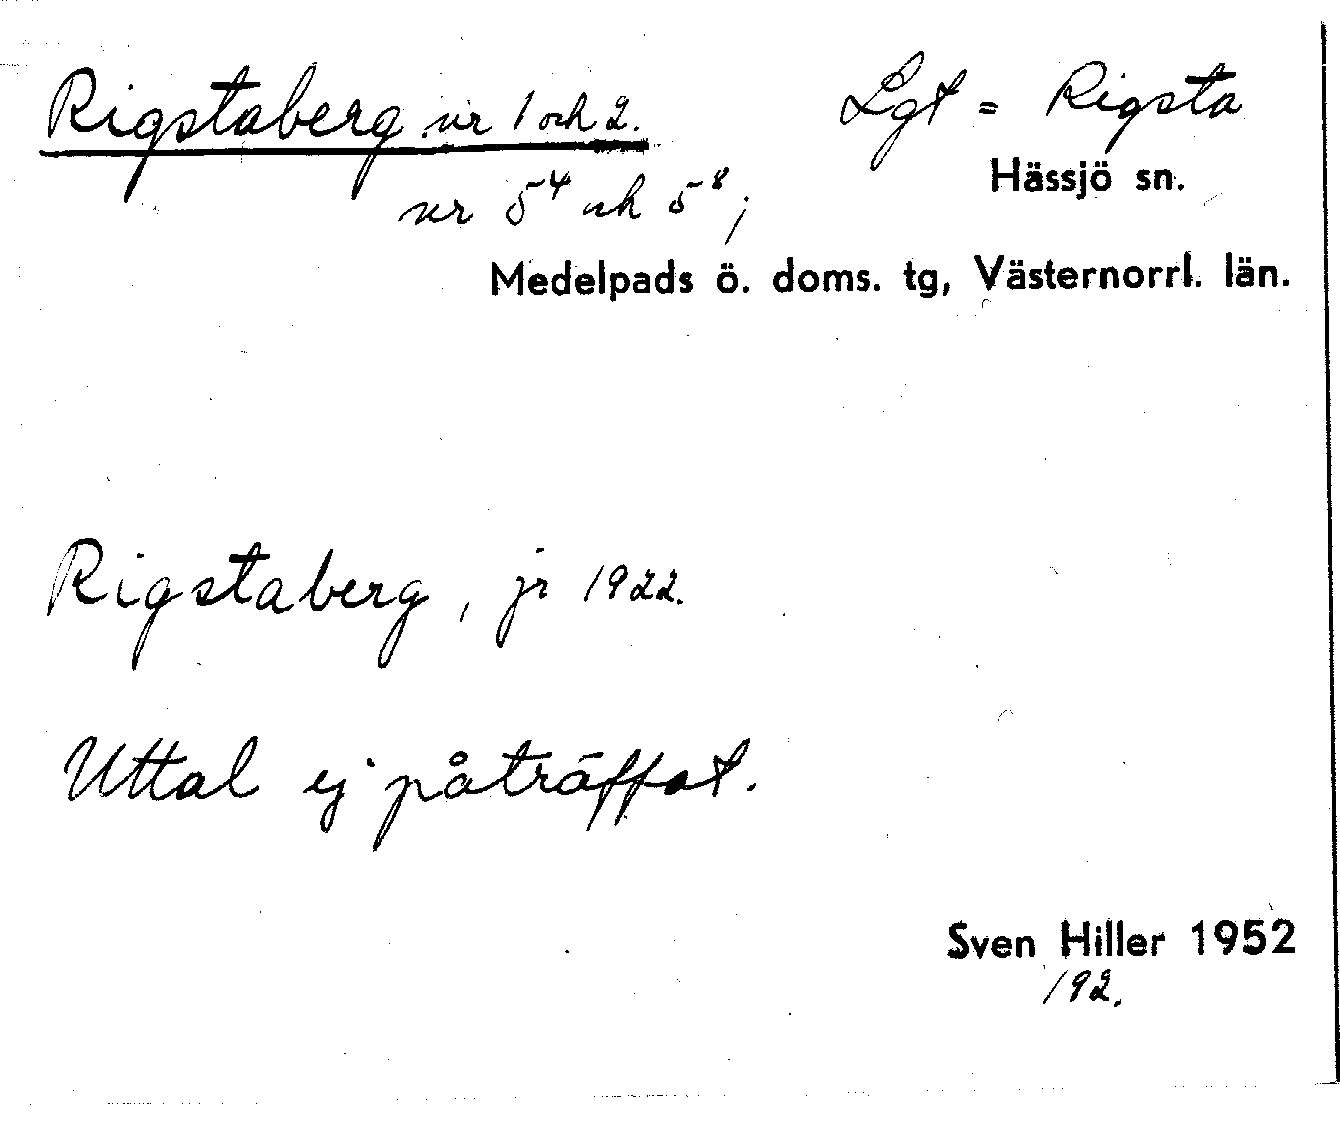 Rigstaberg nr 1 och 2.
Lgt = Rigsta
Hässjö sn.
nr 5⁴ och 5⁸;
Medelpads ö. doms. tg, Västernorrl. län.
Rigstaberg, jr 1922.
Uttal ej påträffat.
Sven Hiller 1952
192.